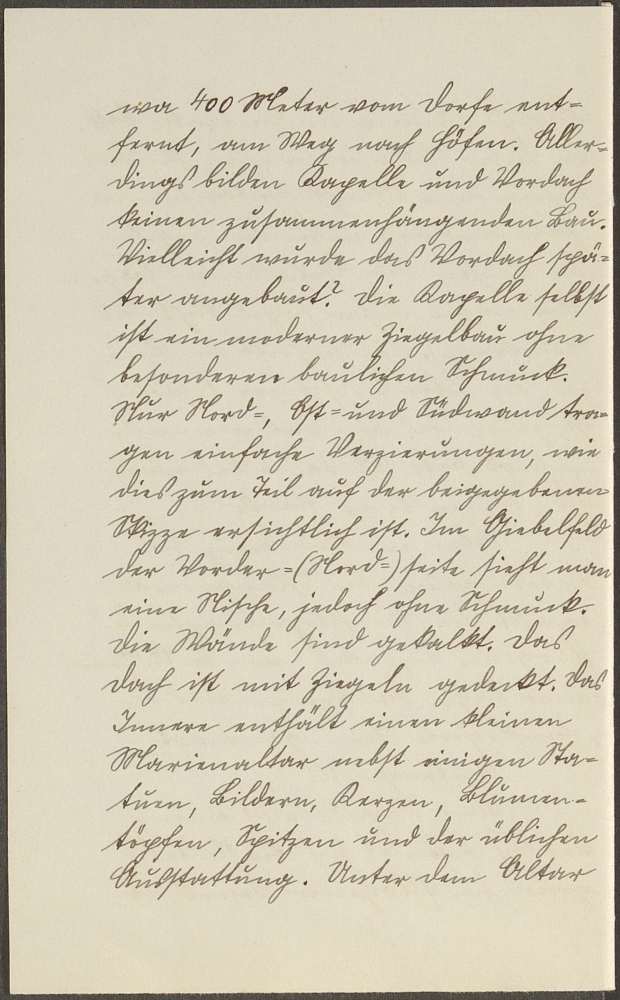 wa 400 Meter vom Dorfe ent=
fernt, am Weg nach Höfen. Aller=
dings bilden Kapelle und Vordach
keinen zusammenhängenden Bau.
Vielleicht wurde das Vordach spä=
ter angebaut? Die Kapelle selbst
ist ein moderner Ziegelbau ohne
besonderen baulichen Schmuck.
Nur Nord=, Ost= und Südwand tra=
gen einfache Verzierungen, wie
dies zum Teil auf der beigegebenen
Skizze ersichtlich ist. Im Giebelfeld
der Vorder=(Nord=)seite sieht man
eine Nische, jedoch ohne Schmuck.
Die Wände sind gekalkt. Das
Dach ist mit Ziegeln gedeckt. Das
Innere enthält einen kleinen
Marienaltar nebst einigen Sta=
tuen, Bildern, Kerzen, Blumen=
töpfen, Spitzen und der üblichen
Ausstattung. Unter dem Altar